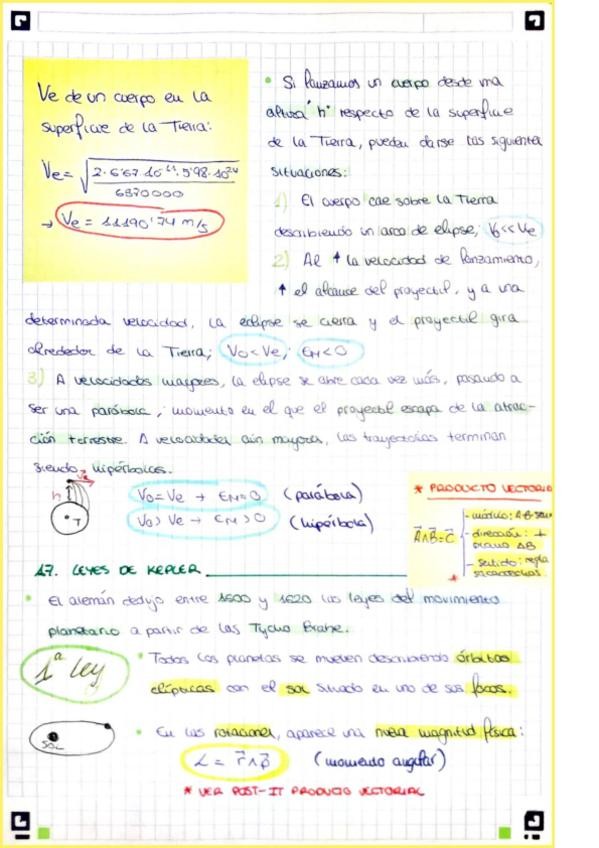 Ve de un cuerpo en la
superficie de la Tierra:
Ve = √(2·6'67·10⁻¹¹·5'98·10²⁴ / 6370000)
→ Ve = 11190'74 m/s
• Si lanzamos un cuerpo desde una
altura "h" respecto de la superficie
de la Tierra, pueden darse las siguientes
situaciones:
1) El cuerpo cae sobre la Tierra
describiendo un arco de elipse; V₀<<Ve
2) Al ↑ la velocidad de lanzamiento,
↑ el alcance del proyectil, y a una
determinada velocidad, la eclipse se cierra y el proyectil gira
alrededor de la Tierra; V₀<Ve; Em<0
3) A velocidades mayores, la elipse se abre cada vez más, pasando a
ser una parábola, momento en el que el proyectil escapa de la atrac-
ción terrestre. A velocidades aún mayores, las trayectorias terminan
siendo hipérbolas.
h
T
V₀=Ve → Em=0 (parábola)
V₀>Ve → Em>0 (hipérbola)
* PRODUCTO VECTORIAL
A⃗∧B⃗=C⃗
- módulo: A·B·sen
- dirección: ⊥
plano AB
- sentido: regla
sacacorchos.
*
17. LEYES DE KEPLER
• El alemán dedujo entre 1600 y 1620 las leyes del movimiento
planetario a partir de las Tycho Brahe.
1ª ley
• Todos los planetas se mueven describiendo órbitas
elípticas con el sol situado en uno de sus focos.
SOL
• En las rotaciones, aparece una nueva magnitud física:
L = r⃗∧p⃗ (momento angular)
* VER POST-IT PRODUCTO VECTORIAL